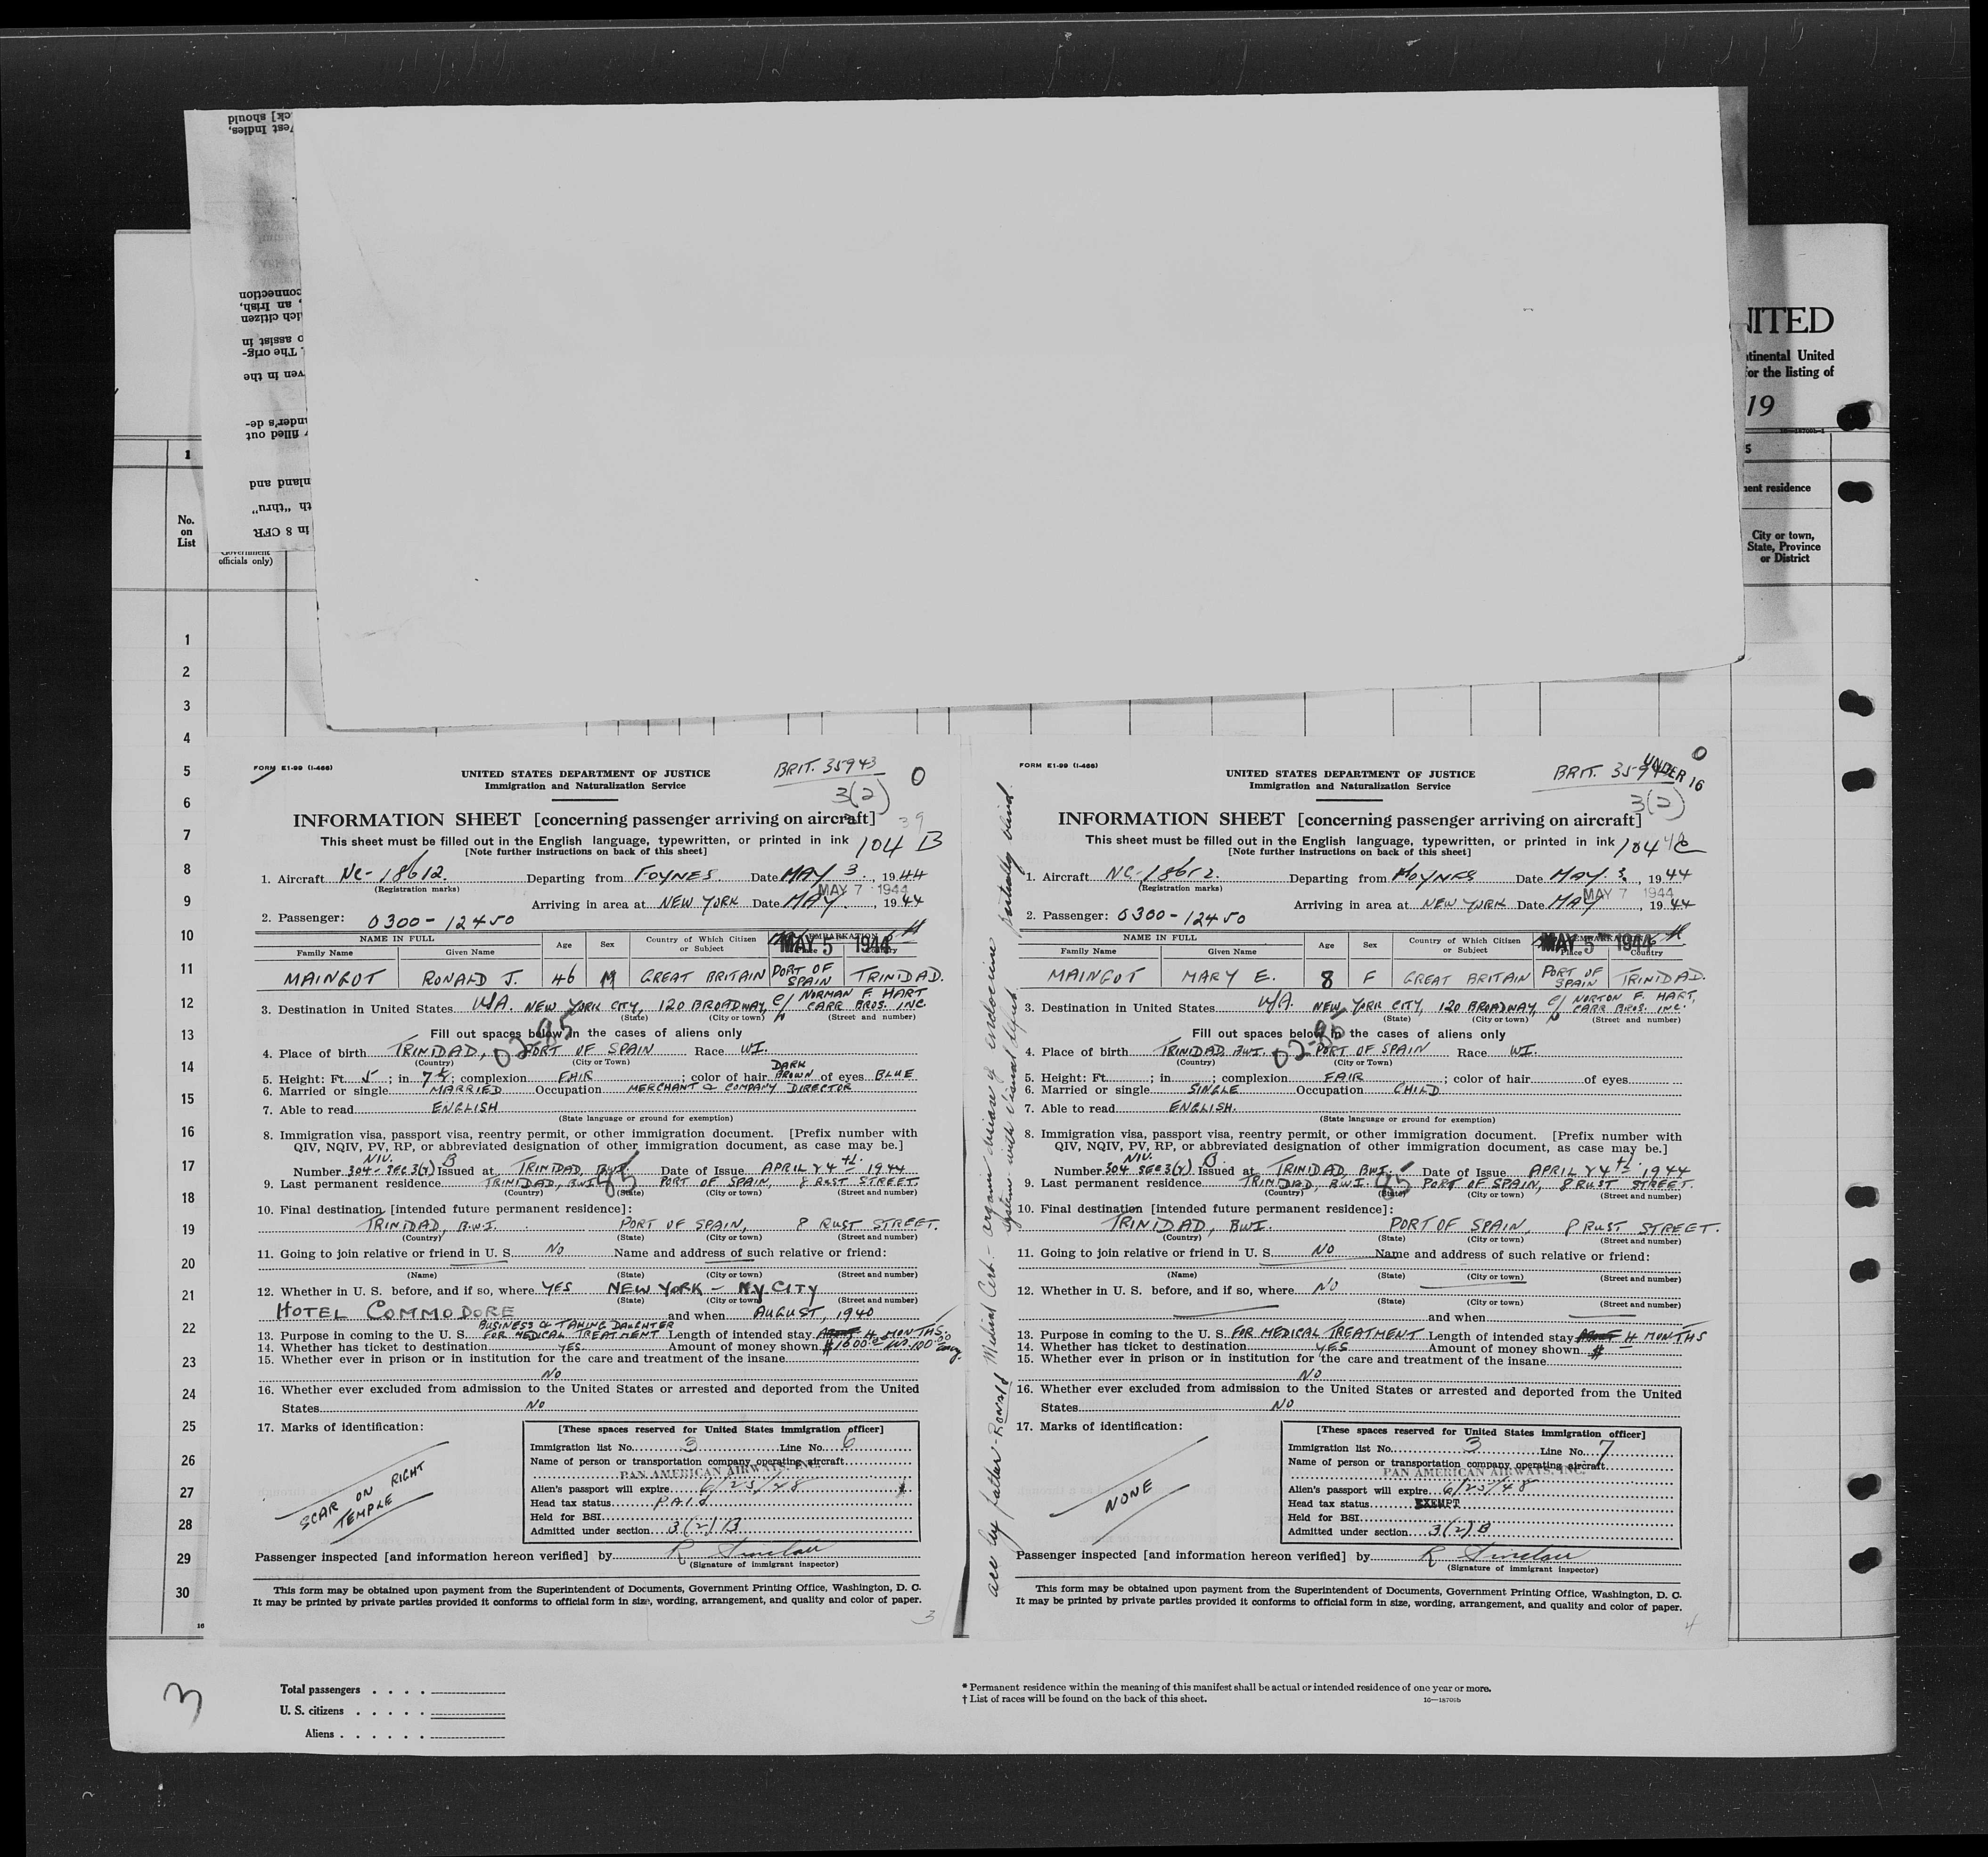 ck] should
est Indies,
connection
, an Irish,
ich citizen
o assist in
. The orig-
ven in the
nder's de-
filled out
nland and
th "thru"
in 8 CFR
NITED
tinental United
for the listing of
19
1
5
No.
on
List
Government
officials only)
nent residence
City or town,
State, Province
or District
1
2
3
4
5
6
7
8
9
10
11
12
13
14
15
16
17
18
19
20
21
22
23
24
25
26
27
28
29
30
16
FORM E1-99 (I-466)
BRIT. 35943
0
3(2)
39
UNITED STATES DEPARTMENT OF JUSTICE
Immigration and Naturalization Service
INFORMATION SHEET [concerning passenger arriving on aircraft]
This sheet must be filled out in the English language, typewritten, or printed in ink
104 B
[Note further instructions on back of this sheet]
1. Aircraft NC-18612. Departing from FOYNES. Date MAY 3., 1944
(Registration marks)
MAY 7 1944
Arriving in area at NEW YORK Date MAY, 1944
2. Passenger: 0300-12450
NAME IN FULL Age Sex Country of Which Citizen or Subject EMBARKATION
MAY 5 1944
Family Name Given Name Place Country
MAINGOT RONALD J. 46 M GREAT BRITAIN PORT OF SPAIN TRINIDAD.
3. Destination in United States NEW YORK CITY, 120 BROADWAY, c/o NORMAN F. HART CARR BROS. INC.
(State) (City or town) (Street and number)
Fill out spaces below in the cases of aliens only
02-85
4. Place of birth TRINIDAD, PORT OF SPAIN Race WI.
(Country) (City or Town)
5. Height: Ft. 5; in 7½; complexion FAIR; color of hair DARK BROWN of eyes BLUE
6. Married or single MARRIED Occupation MERCHANT & COMPANY DIRECTOR
7. Able to read ENGLISH
(State language or ground for exemption)
8. Immigration visa, passport visa, reentry permit, or other immigration document. [Prefix number with
QIV, NQIV, PV, RP, or abbreviated designation of other immigration document, as case may be.]
NIV.
Number 304-SEC 3(2) B Issued at TRINIDAD, BWI. Date of Issue APRIL 24th 1944
9. Last permanent residence TRINIDAD, BWI 85 PORT OF SPAIN, 8 RUST STREET.
(Country) (State) (City or town) (Street and number)
10. Final destination [intended future permanent residence]:
TRINIDAD, B.W.I. PORT OF SPAIN, 8 RUST STREET.
(Country) (State) (City or town) (Street and number)
11. Going to join relative or friend in U. S. NO Name and address of such relative or friend:
(Name) (State) (City or town) (Street and number)
12. Whether in U. S. before, and if so, where YES NEW YORK - N.Y. CITY
(State) (City or town) (Street and number)
HOTEL COMMODORE and when AUGUST, 1940
BUSINESS & TAKING DAUGHTER
13. Purpose in coming to the U. S. FOR MEDICAL TREATMENT Length of intended stay 4 MONTHS
14. Whether has ticket to destination YES Amount of money shown $1600
15. Whether ever in prison or in institution for the care and treatment of the insane
NO
16. Whether ever excluded from admission to the United States or arrested and deported from the United
States NO
17. Marks of identification:
SCAR ON RIGHT
TEMPLE
[These spaces reserved for United States immigration officer]
Immigration list No. 3 Line No. 6
Name of person or transportation company operating aircraft
PAN AMERICAN AIRWAYS, INC.
Alien's passport will expire 6/25/48
Head tax status PAID
Held for BSI
Admitted under section 3(2) B
Passenger inspected [and information hereon verified] by R Sinclair
(Signature of immigrant inspector)
This form may be obtained upon payment from the Superintendent of Documents, Government Printing Office, Washington, D. C.
It may be printed by private parties provided it conforms to official form in size, wording, arrangement, and quality and color of paper.
3
acc by father-Ronald Medical Cert.- organic disease of endocrine
system with visual defect partially blind.
FORM E1-99 (I-466)
BRIT.
UNDER 16
0
3(2)
UNITED STATES DEPARTMENT OF JUSTICE
Immigration and Naturalization Service
INFORMATION SHEET [concerning passenger arriving on aircraft]
This sheet must be filled out in the English language, typewritten, or printed in ink
[Note further instructions on back of this sheet]
1. Aircraft NC-18612. Departing from FOYNES Date MAY 3, 1944
(Registration marks)
MAY 7 1944
Arriving in area at NEW YORK Date MAY 1944
2. Passenger: 0300-12450
NAME IN FULL Age Sex Country of Which Citizen or Subject EMBARKATION
MAY 5 1944
Family Name Given Name Place Country
MAINGOT MARY E. 8 F GREAT BRITAIN PORT OF SPAIN TRINIDAD.
3. Destination in United States NEW YORK CITY, 120 BROADWAY, c/o NORTON F. HART, CARR BROS. INC.
(State) (City or town) (Street and number)
Fill out spaces below in the cases of aliens only
02-85
4. Place of birth TRINIDAD, BWI. PORT OF SPAIN Race WI.
(Country) (City or Town)
5. Height: Ft.; in; complexion FAIR; color of hair of eyes
6. Married or single SINGLE Occupation CHILD
7. Able to read ENGLISH.
(State language or ground for exemption)
8. Immigration visa, passport visa, reentry permit, or other immigration document. [Prefix number with
QIV, NQIV, PV, RP, or abbreviated designation of other immigration document, as case may be.]
NIV.
Number 304 SEC 3(2) B. Issued at TRINIDAD, BWI. Date of Issue APRIL 24th 1944
9. Last permanent residence TRINIDAD, B.W.I. 85 PORT OF SPAIN, 8 RUST STREET.
(Country) (State) (City or town) (Street and number)
10. Final destination [intended future permanent residence]:
TRINIDAD, BWI. PORT OF SPAIN, 8 RUST STREET.
(Country) (State) (City or town) (Street and number)
11. Going to join relative or friend in U. S. NO Name and address of such relative or friend:
(Name) (State) (City or town) (Street and number)
12. Whether in U. S. before, and if so, where NO
(State) (City or town) (Street and number)
and when
13. Purpose in coming to the U. S. FOR MEDICAL TREATMENT Length of intended stay 4 MONTHS
14. Whether has ticket to destination YES Amount of money shown $ -
15. Whether ever in prison or in institution for the care and treatment of the insane
NO
16. Whether ever excluded from admission to the United States or arrested and deported from the United
States NO
17. Marks of identification:
NONE
[These spaces reserved for United States immigration officer]
Immigration list No. 3 Line No. 7
Name of person or transportation company operating aircraft
PAN AMERICAN AIRWAYS, INC.
Alien's passport will expire 6/25/48
Head tax status EXEMPT
Held for BSI
Admitted under section 3(2) B
Passenger inspected [and information hereon verified] by R Sinclair
(Signature of immigrant inspector)
This form may be obtained upon payment from the Superintendent of Documents, Government Printing Office, Washington, D. C.
It may be printed by private parties provided it conforms to official form in size, wording, arrangement, and quality and color of paper.
4
3
Total passengers
U. S. citizens
Aliens
* Permanent residence within the meaning of this manifest shall be actual or intended residence of one year or more.
† List of races will be found on the back of this sheet.